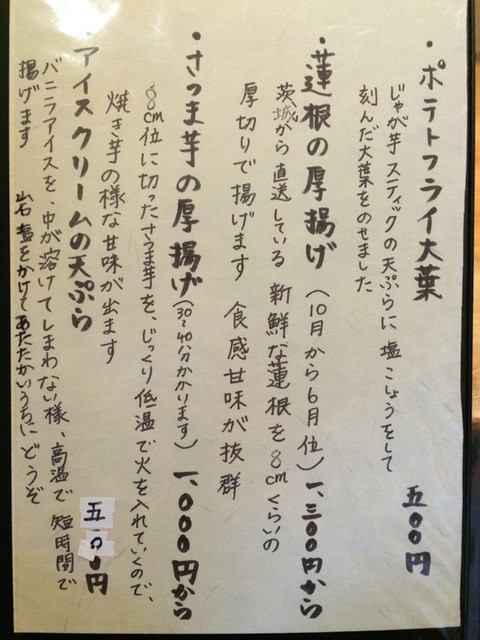 ・ポテトフライ大葉　五00円
じゃが芋スティックの天ぷらに塩こしょうをして
刻んだ大葉をのせました
・蓮根の厚揚げ（10月から6月位）一、三00円から
茨城から直送している新鮮な蓮根を8cmくらいの
厚切りで揚げます　食感甘味が抜群
・さつま芋の厚揚げ（30〜40分かかります）一、000円から
8cm位に切ったさつま芋を、じっくり低温で火を入れていくので、
焼き芋の様な甘味が出ます
・アイスクリームの天ぷら　五00円
バニラアイスを、中が溶けてしまわない様、高温で短時間で
揚げます　岩塩をかけてあたたかいうちにどうぞ